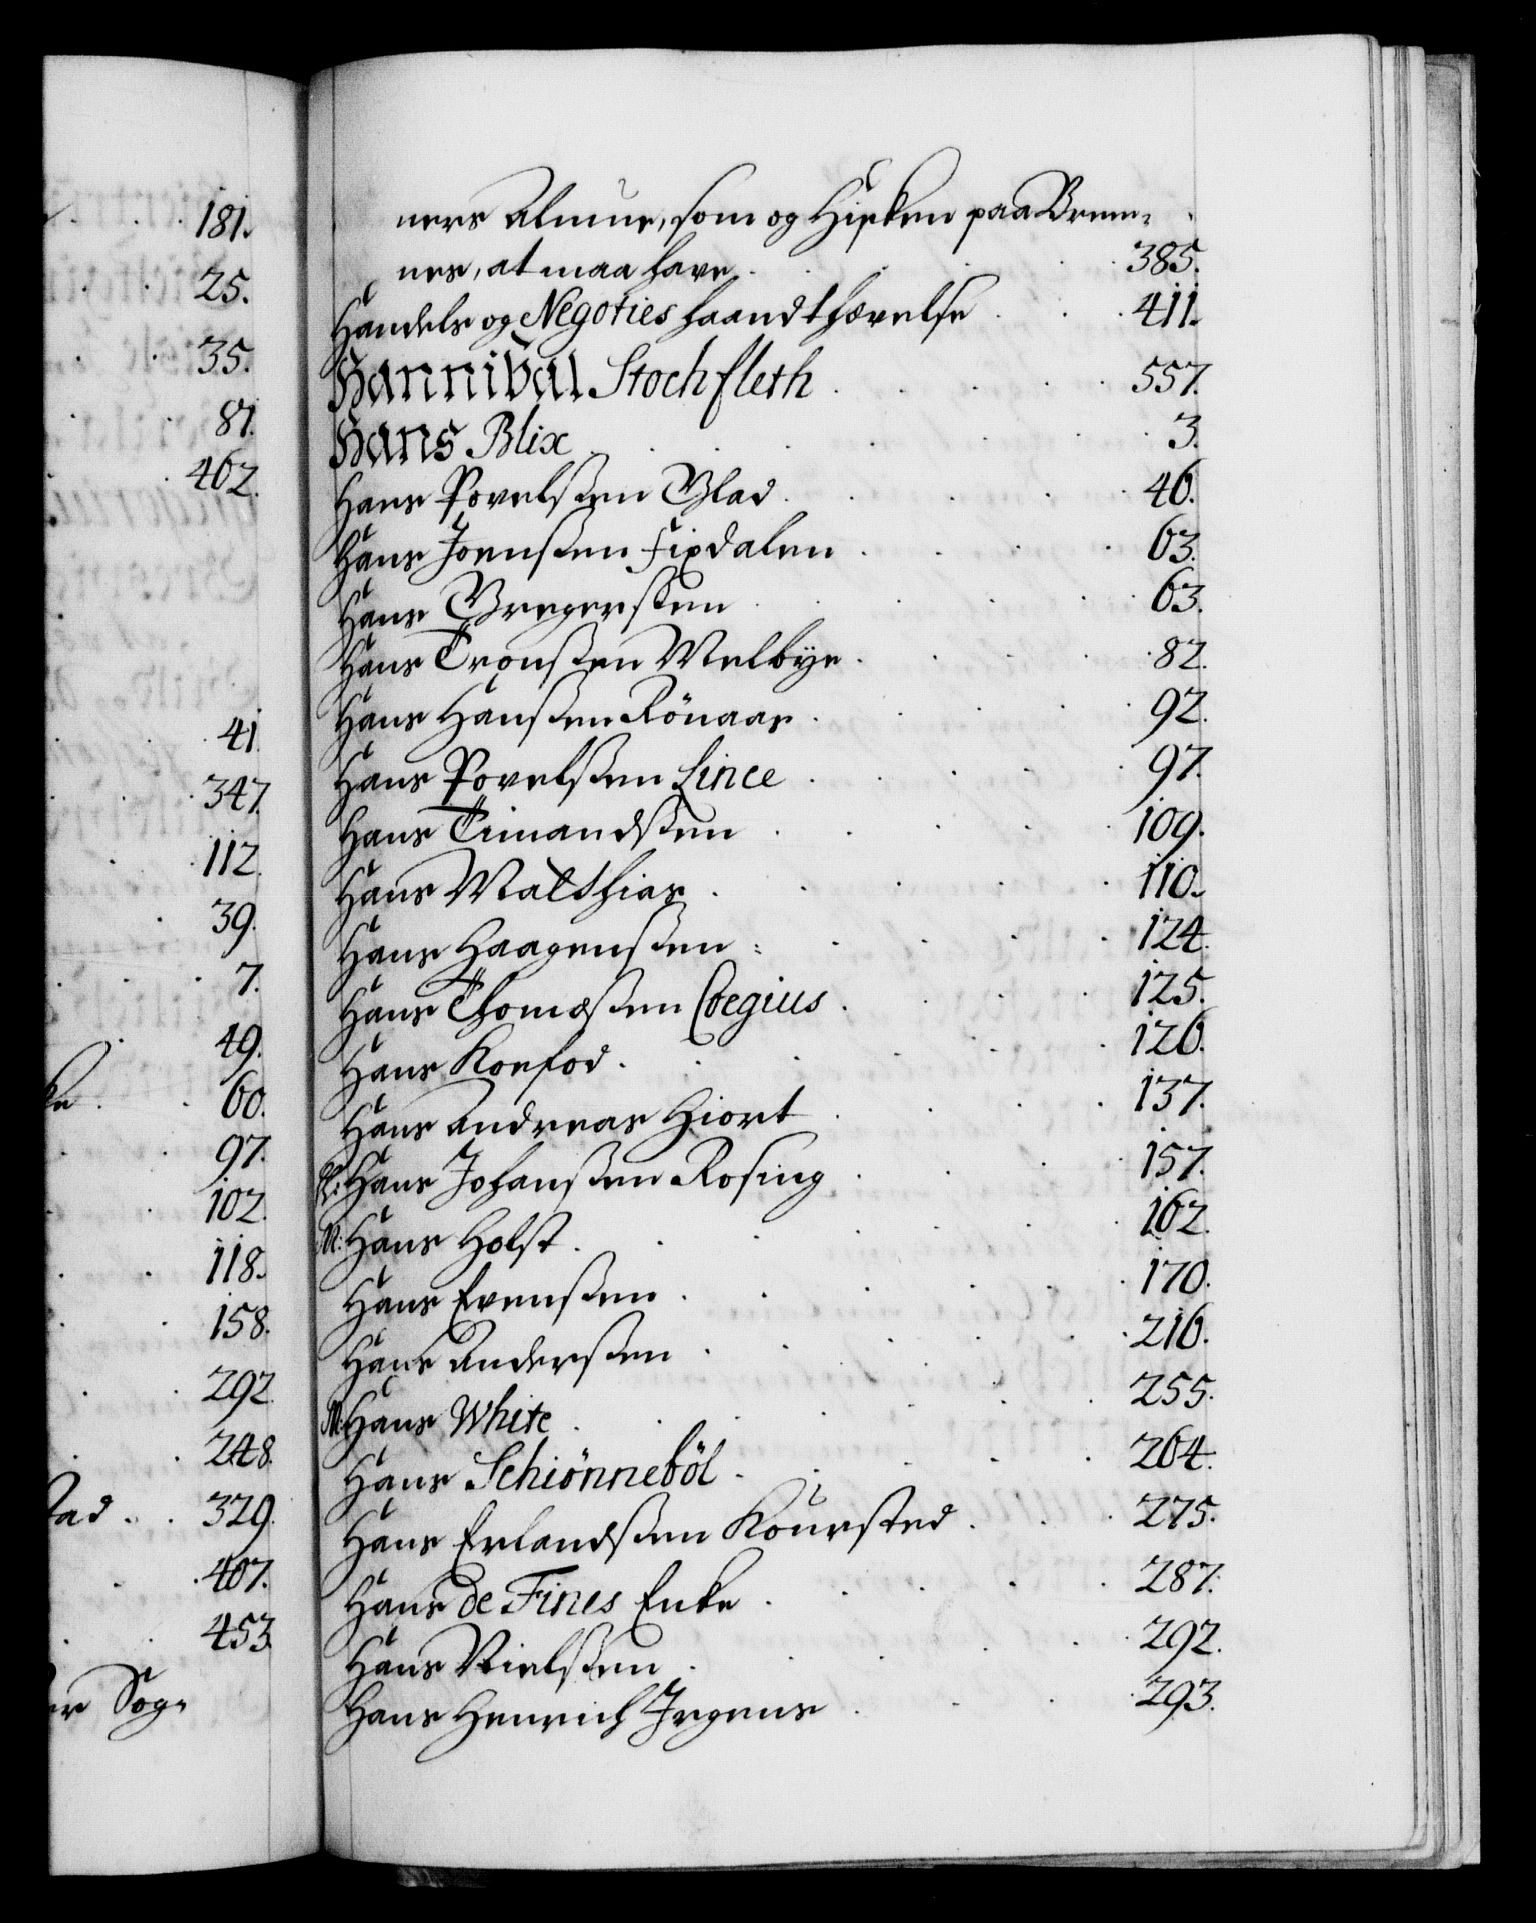 181.
25.
35.
87.
462.
41.
347.
112.
39.
7.
49.
ke . 60.
97.
102.
118.
158.
292.
248.
stad . . 329.
407.
453.
er Sog-
ners Almue, som og Kirken paa Brem-
nes, at maa have . 385.
Handels og Negoties haandthævelse . . 411.
Hannibal Stochfleth . 557.
Hans Blix . 3.
Hans Povelssen Blad . 46.
Hans Joenssen Fixdalen . 63.
Hans Gregerssen . 63.
Hans Tronssen Melbye . 82.
Hans Hanssen Rönaas . 92.
Hans Povelssen Lince . 97.
Hans Timandssen . 109.
Hans Matthias . 110.
Hans Haagenssen . 124.
Hans Thomæssen Coegius . 125.
Hans Koefod . 126.
Hans Andreas Hiort . 137.
Hans Johanssen Rosing . 157.
M: Hans Holst . 162.
Hans Evenssen . 170.
Hans Anderssen . 216.
M: Hans White . 255.
Hans Schiønneböl . 264.
Hans Erlandssen Koursted . 275.
Hans de Fines Enke . 287.
Hans Nielssen . 292.
Hans Henrich Jrgens . 293.